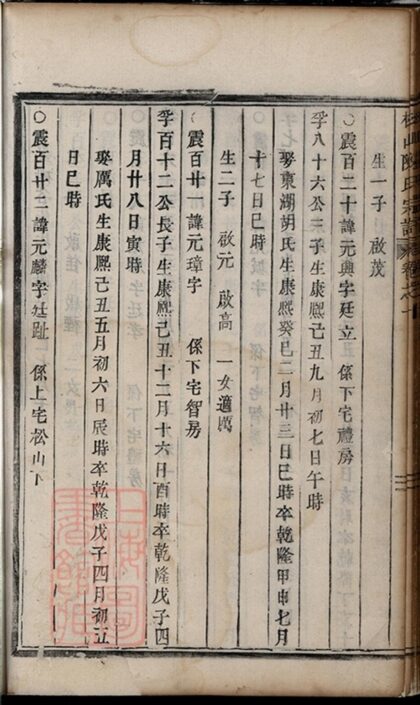 山陳氏宗譜 卷之十
生一子 啟茂
○震百二十諱元興字廷立 係下宅禮房
孚八十六公三子生康熙己丑九月初七日午時
娶東湖胡氏生康熙癸巳二月廿三日巳時卒乾隆甲申七月
十七日巳時
生二子 啟元 啟高 一女適厲
○震百廿一諱元璋字 係下宅智房
孚百十二公長子生康熙己丑十二月十六日酉時卒乾隆戊子四
月廿八日寅時
娶厲氏生康熙己丑五月初六日辰時卒乾隆戊子四月初五
日巳時
○震百廿二諱元麟字廷趾 係上宅松山下
上海圖書館藏